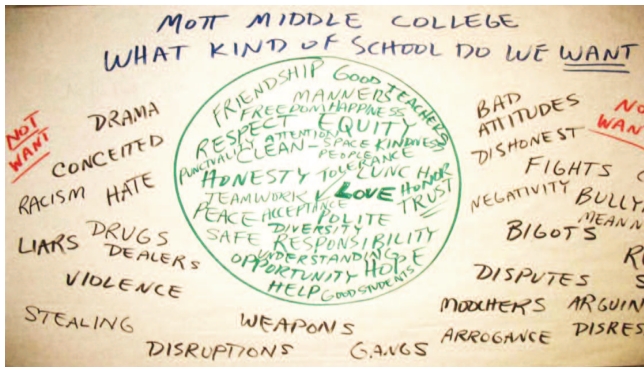 MOTT MIDDLE COLLEGE
WHAT KIND OF SCHOOL DO WE WANT
NOT
WANT
DRAMA
CONCEITED
RACISM HATE
LIARS DRUGS
DEALERS
VIOLENCE
STEALING
DISRUPTIONS
WEAPONS
GANGS
FRIENDSHIP GOOD TEACHERS
MANNERS
FREEDOM HAPPINESS
RESPECT EQUITY
PUNCTUALITY ATTENTION
CLEAN-SPACE KINDNESS
PEOPLE
HONESTY TOLERANCE
LUNCH HR
TEAMWORK LOVE HONOR
PEACE ACCEPTANCE TRUST
POLITE
DIVERSITY
SAFE RESPONSIBILITY
UNDERSTANDING
OPPORTUNITY HOPE
HELP GOOD STUDENTS
BAD
ATTITUDES
DISHONEST
NO
WAN
FIGHTS
NEGATIVITY BULLY
MEANN
BIGOTS
DISPUTES
MOOCHERS ARGUIN
ARROGANCE DISRES